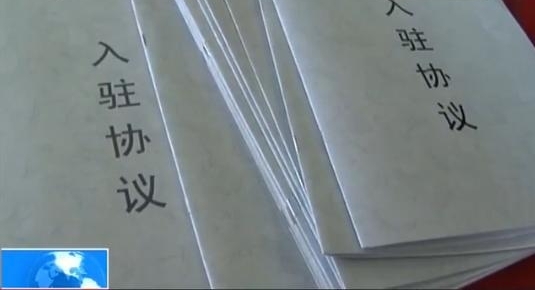 入驻协议
入驻协议